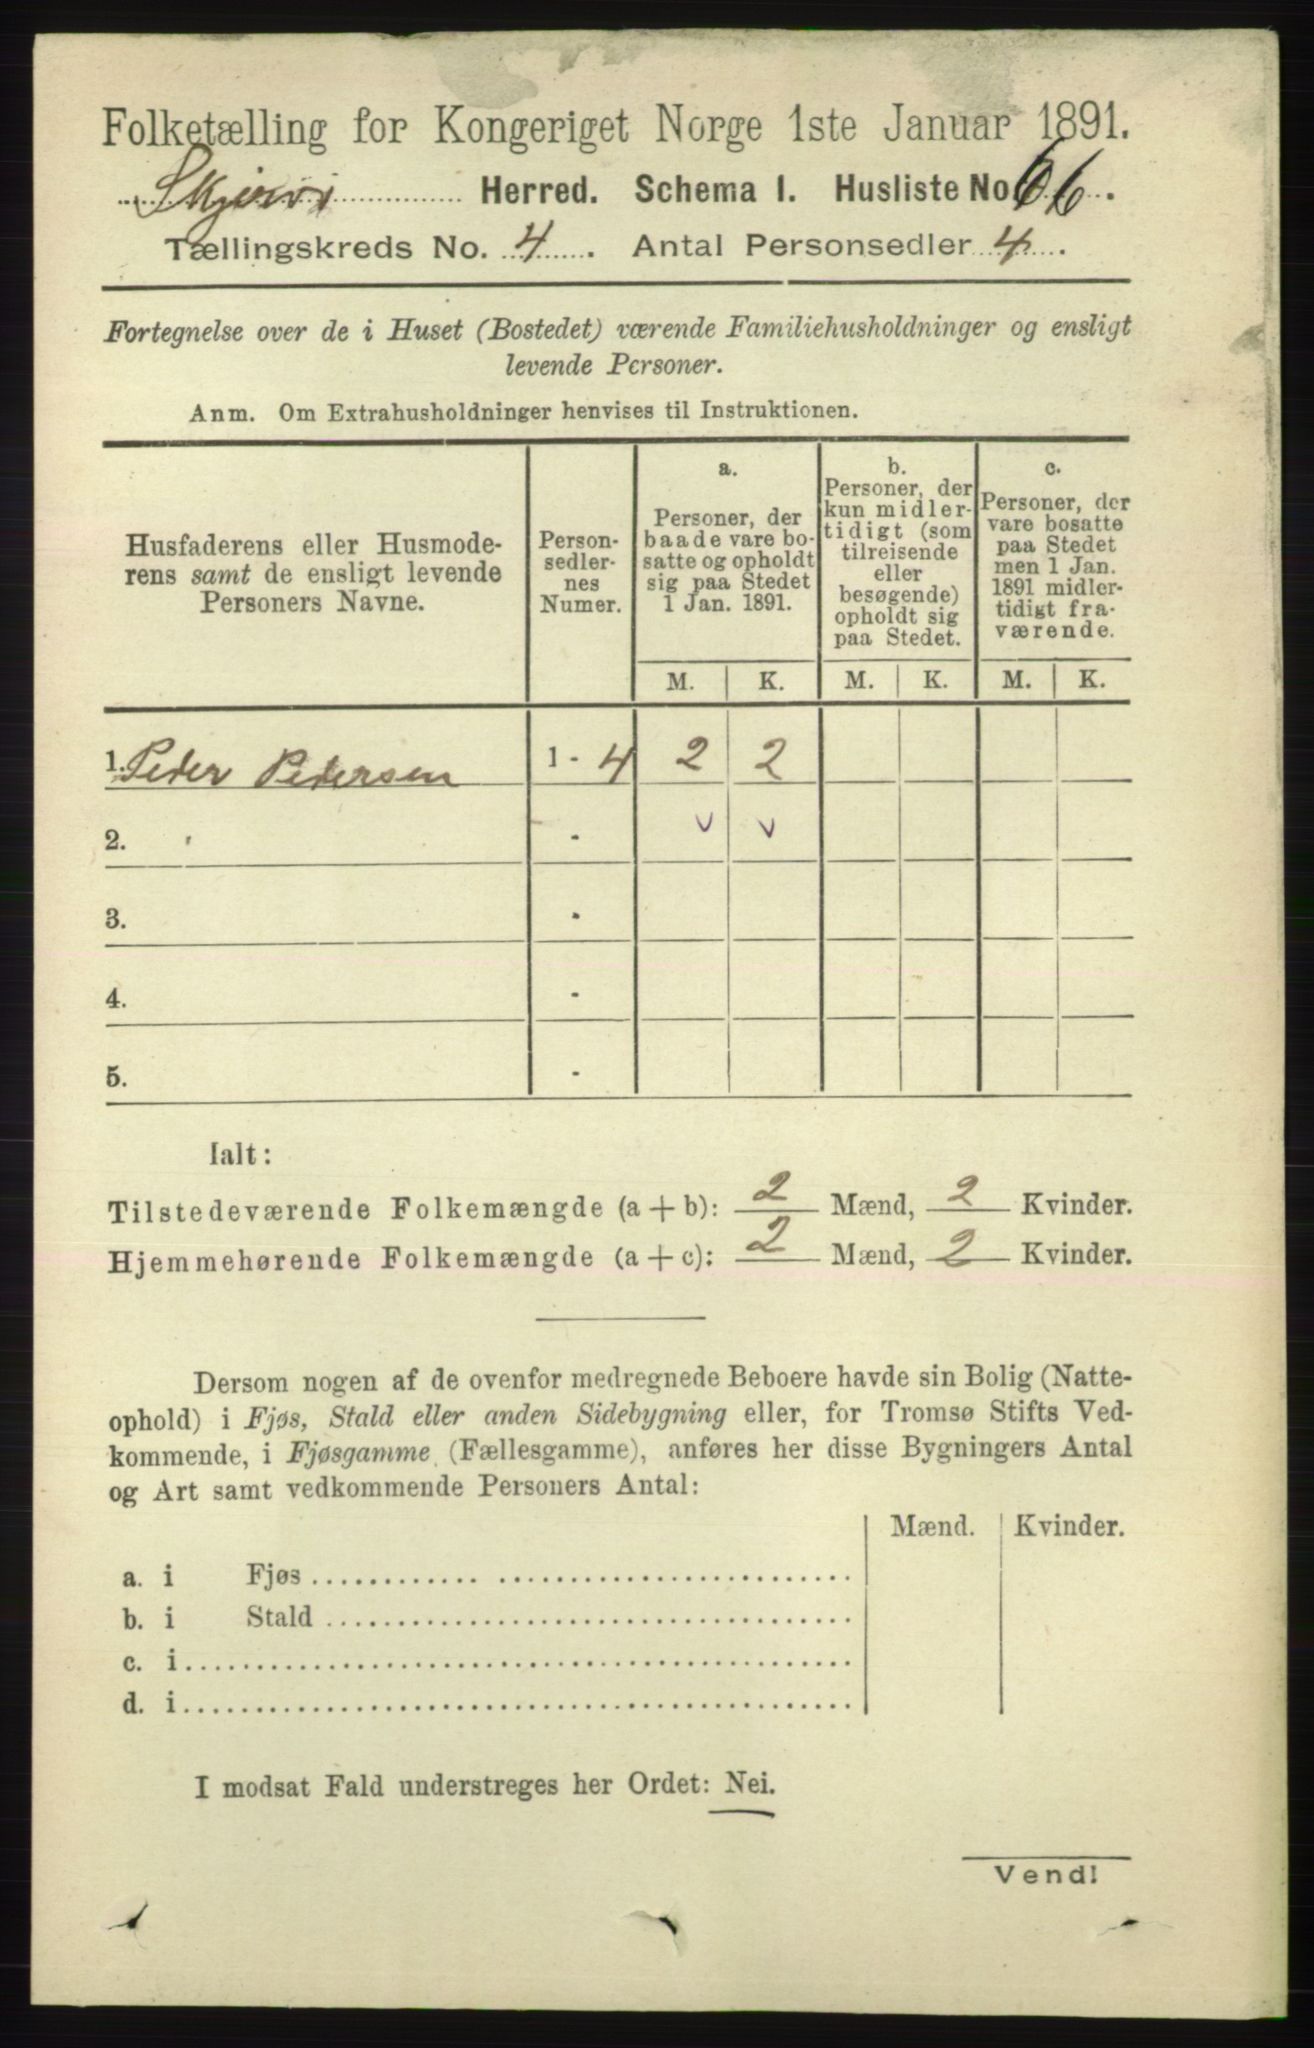 Folketælling for Kongeriget Norge 1ste Januar 1891.
Skjervø Herred. Schema 1. Husliste No 66.
Tællingskreds No. 4. Antal Personsedler 4.
Fortegnelse over de i Huset (Bostedet) værende Familiehusholdninger og ensligt
levende Personer.
Anm. Om Extrahusholdninger henvises til Instruktionen.
Husfaderens eller Husmode-
rens samt de ensligt levende
Personers Navne.
Person-
sedler-
nes
Numer.
a.
Personer, der
baade vare bo-
satte og opholdt
sig paa Stedet
1 Jan. 1891.
b.
Personer, der
kun midler-
tidigt (som
tilreisende
eller
besøgende)
opholdt sig
paa Stedet.
c.
Personer, der
vare bosatte
paa Stedet
men 1 Jan.
1891 midler-
tidigt fra-
værende.
M. K. M. K. M. K.
1. Peder Pedersen 1 - 4 2 2
2. - v v
3. -
4. -
5. -
Ialt:
Tilstedeværende Folkemængde (a + b): 2 Mænd, 2 Kvinder.
Hjemmehørende Folkemængde (a + c): 2 Mænd, 2 Kvinder.
Dersom nogen af de ovenfor medregnede Beboere havde sin Bolig (Natte-
ophold) i Fjøs, Stald eller anden Sidebygning eller, for Tromsø Stifts Ved-
kommende, i Fjøsgamme (Fællesgamme), anføres her disse Bygningers Antal
og Art samt vedkommende Personers Antal:
Mænd. Kvinder.
a. i Fjøs
b. i Stald
c. i
d. i
I modsat Fald understreges her Ordet: Nei.
Vend!